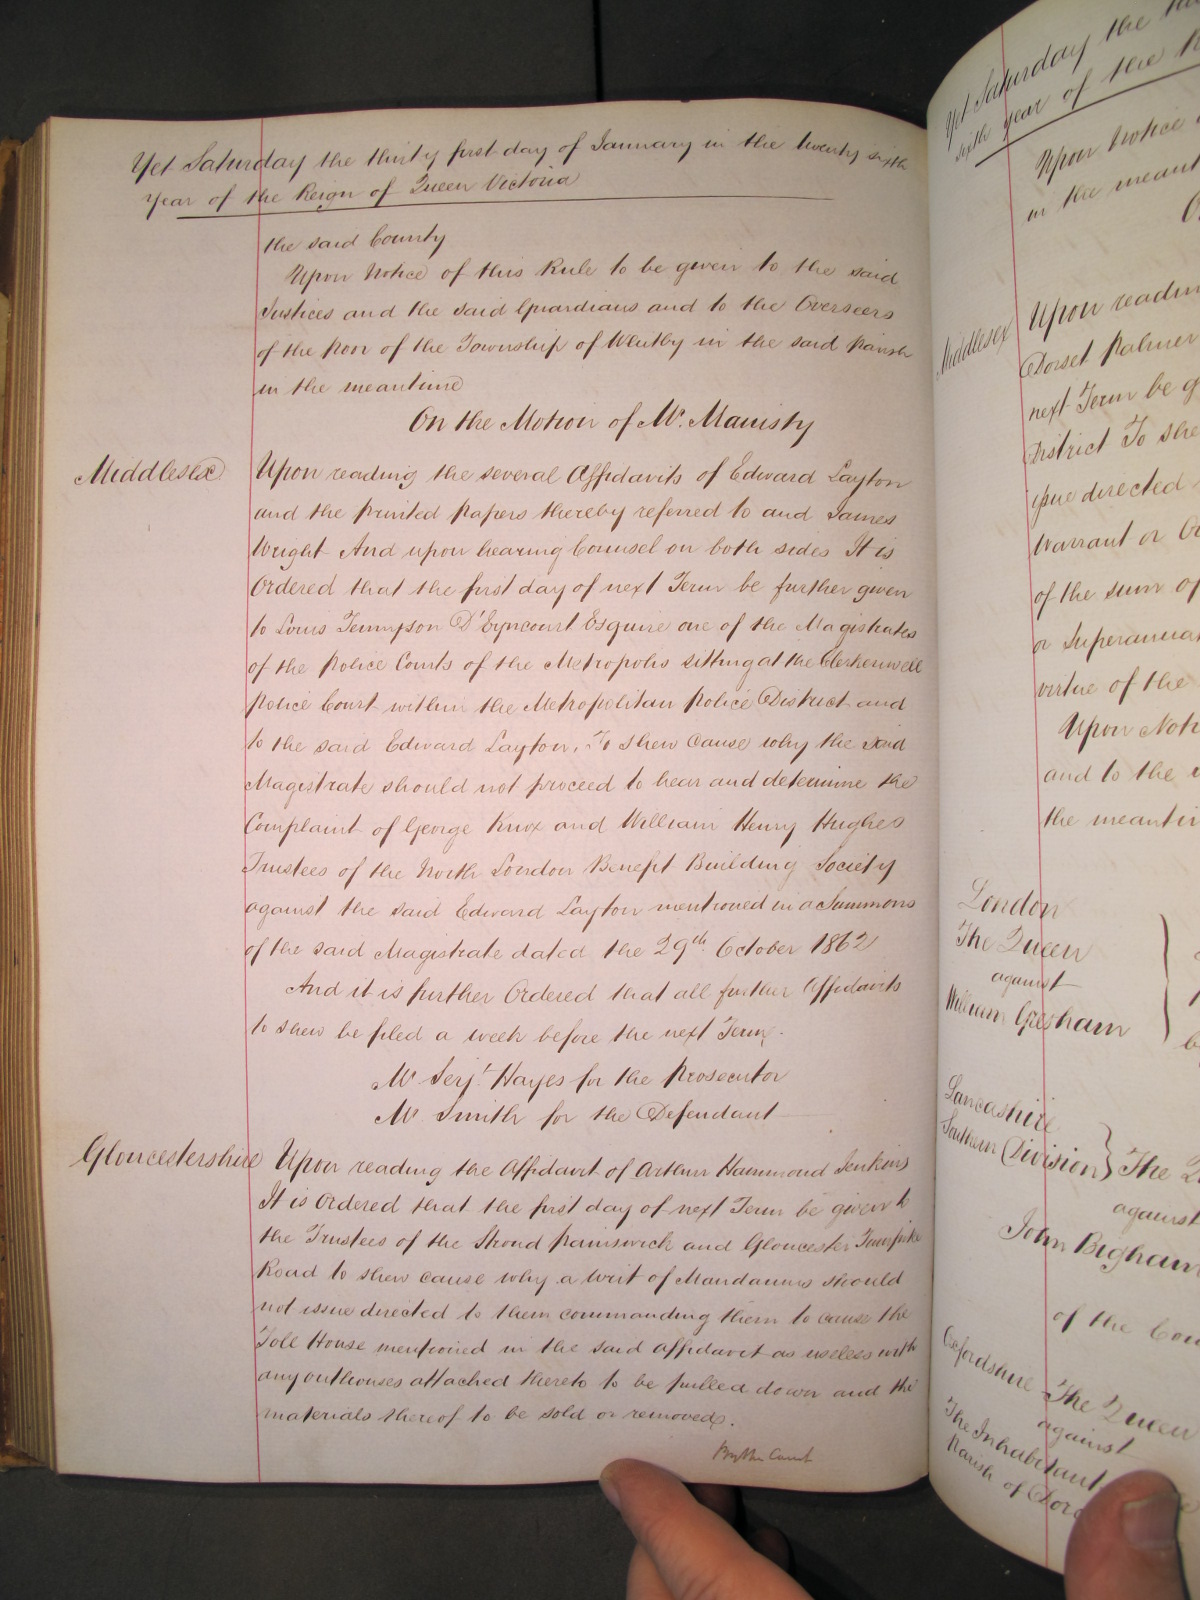 Yet Saturday the thirty first day of January in the twenty sixth
Year of the Reign of Queen Victoria
the said County
Upon Notice of this Rule to be given to the said
Justices and the said Guardians and to the Overseers
of the Poor of the Township of Whitby in the said Parish
in the meantime
On the Motion of Mr. Manisty
Middlesex
Upon reading the several Affidavits of Edward Layton
and the printed papers thereby referred to and James
Wright And upon hearing Counsel on both sides It is
Ordered that the first day of next Term be further given
to Louis Tennyson D'Eyncourt Esquire one of the Magistrates
of the Police Courts of the Metropolis sitting at the Clerkenwell
Police Court within the Metropolitan Police District and
to the said Edward Layton, To shew cause why the said
Magistrate should not proceed to hear and determine the
Complaint of George Knox and William Henry Hughes
Trustees of the North London Benefit Building Society
against the said Edward Layton mentioned in a Summons
of the said Magistrate dated the 29th October 1862
And it is further Ordered that all further Affidavits
to shew be filed a week before the next Term.
Mr Serjt Hayes for the Prosecutor
Mr Smith for the Defendant
Gloucestershire
Upon reading the Affidavit of Arthur Hammond Jenkins
It is Ordered that the first day of next Term be given to
the Trustees of the Stroud Painswick and Gloucester Turnpike
Road to shew cause why a Writ of Mandamus should
not issue directed to them commanding them to cause the
Toll House mentioned in the said affidavit as useless with
any outhouses attached thereto to be pulled down and the
materials thereof to be sold or removed.
By the Court
Yet Saturday the
sixth year of the
Upon Notice
in the meant
Middlesex
Upon readin
Dorset Palmer
next Term be g
District To she
issue directed
Warrant or Or
of the sum of
or Superannua
virtue of the
Upon Noti
and to the
the meantim
London
The Queen
against
William Gresham
Lancashire
Southern Division
The Q
against
John Bigham
of the Cou
Oxfordshire
The Queen
against
The Inhabitant
Parish of Dorc